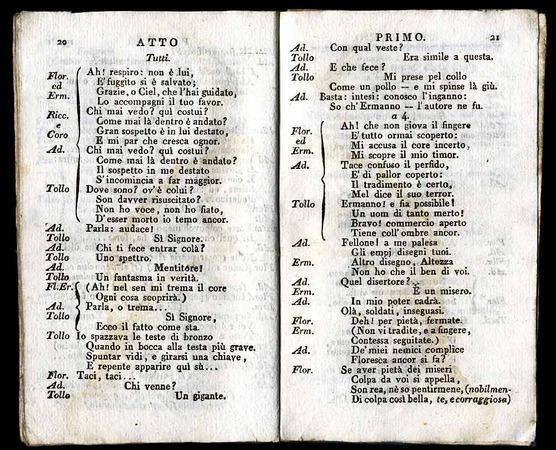 20 ATTO
Tutti.
Flor. Ah! respiro: non è lui,
ed E' fuggito si è salvato;
Erm. Grazie, o Ciel, che l'hai guidato,
Lo accompagni il tuo favor.
Ricc. Chi mai vedo? quì costui?
e Come mai là dentro è andato?
Coro Gran sospetto è in lui destato,
E mi par che cresca ognor.
Ad. Chi mai vedo? quì costui?
Come mai là dentro è andato?
Il sospetto in me destato
S'incomincia a far maggior.
Tollo Dove sono? ov'è colui?
Son davver risuscitato?
Non ho voce, non ho fiato,
D'esser morto io temo ancor.
Ad. Parla: audace!
Tollo Sì Signore.
Ad. Chi ti fece entrar colà?
Tollo Uno spettro.
Ad. Mentitore!
Tollo Un fantasma in verità.
Fl.Er. (Ah! nel sen mi trema il core
Ogni cosa scoprirà.)
Ad. Parla, o trema...
Tollo Sì Signore,
Ecco il fatto come sta.
Tollo Io spazzava le teste di bronzo
Quando in bocca alla testa più grave.
Spuntar vidi, e girarsi una chiave,
E repente apparire quì sù...
Flor. Taci, taci...
Ad. Chi venne?
Tollo Un gigante.
PRIMO. 21
Ad. Con qual veste?
Tollo Era simile a questa.
Ad. E che fece?
Tollo Mi prese pel collo
Come un pollo — e mi spinse là giù.
Ad. Basta: intesi: conosco l'inganno:
So ch'Ermanno — l'autore ne fu.
a 4.
Flor. Ah! che non giova il fingere
ed E' tutto ormai scoperto:
Erm. Mi accusa il core incerto,
Mi scopre il mio timor.
Ad. Tace confuso il perfido,
E' di pallor coperto:
Il tradimento è certo,
Mel dice il suo terror.
Tollo Ermanno! e fia possibile!
Un uom di tanto merto!
Bravo! commercio aperto
Tiene coll'ombre ancor.
Ad. Fellone! a me palesa
Gli empj disegni tuoi.
Erm. Altro disegno, Altezza
Non ho che il ben di voi.
Ad. Quel disertore?
Erm. E un misero.
Ad. In mio poter cadrà.
Olà, soldati, inseguasi.
Flor. Deh! per pietà, fermate.
Erm. (Non vi tradite, e a fingere,
Contessa seguitate.)
Ad. De' miei nemici complice
Floresca ancor si fa?
Flor. Se aver pietà dei miseri
Colpa da voi si appella,
Son rea, nè so pentirmene, (nobilmen-
Di colpa così bella, te, e corraggiosa)